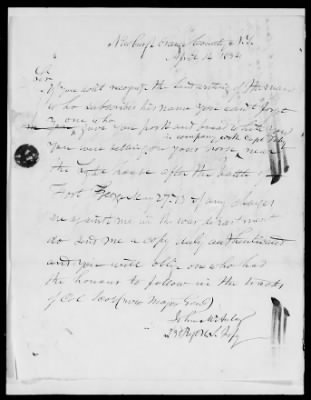 Newburgh Orange County N.Y.
April 14 1834
Sir
If you don't recognize the handwriting of the man
who subscribes his name you can't forget
one who
gave you pork and bread while you
in company with Capt
you were setting on your horse near
the light house after the battle of
Fort George May 27. 13 If any charges
are against me in the war department
do send me a copy duly authenticated
and you will oblige one who had
the honour to follow in the tracks
of Col Scott (now Major Genl)
John
23d Regt U.S. Infy